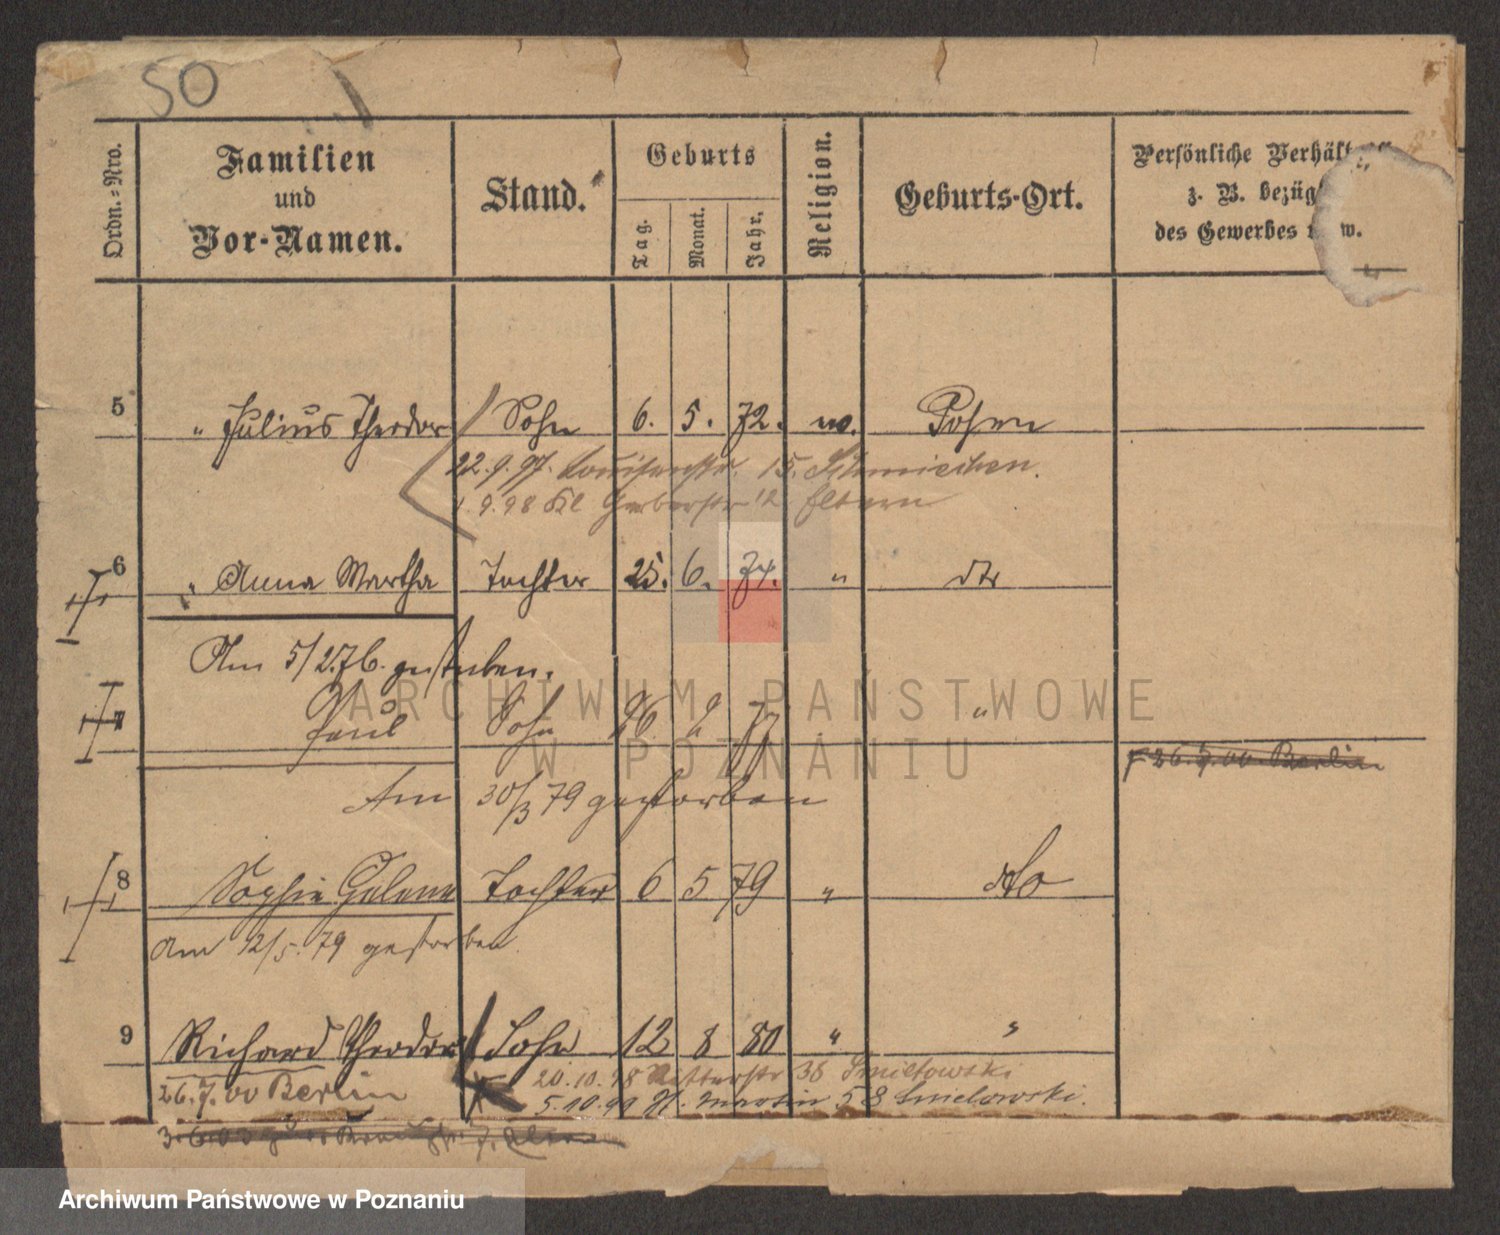 50
Ordn.-Nro.
Familien
und
Vor-Namen.
Stand.
Geburts
Tag.
Monat.
Jahr.
Religion.
Geburts-Ort.
Persönliche Verhält
z. B. bezüg
des Gewerbes w.
5 " Julius Theodor Sohn 6. 5. 72. Posen
22.9.97. Louisenstr. 15.
9.98 Kl Gerberstr 12 Eltern
6 " Anna Martha Tochter 25. 6. 74. " dto
Am 5/2.76. gestorben.
7 Paul Sohn 26 2 77 "
26.7.00 Berlin
Am 30/3 79 gestorben
8 Sophie Helene Tochter 6 5 79 " dto
Am 12/5. 79 gestorben.
9 Richard Theodor Sohn 12 8 80 " "
26.7.00 Berlin
20.10.98 Ritterstr 38 Smielowski
5.10.99 St. Martin 58 Smielowski.
3.6.03
ARCHIWUM PAŃSTWOWE
W POZNANIU
Archiwum Państwowe w Poznaniu